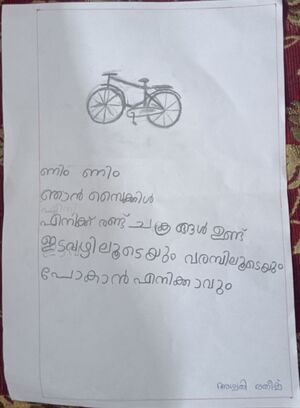 ണിം ണിം
ഞാൻ സൈക്കിൾ
എനിക്ക് രണ്ട് ചക്രങ്ങൾ ഉണ്ട്
ഇടവഴിലൂടെയും വരമ്പിലൂടെയും
പോകാൻ എനിക്കാവും
അശ്വതി രതീഷ്